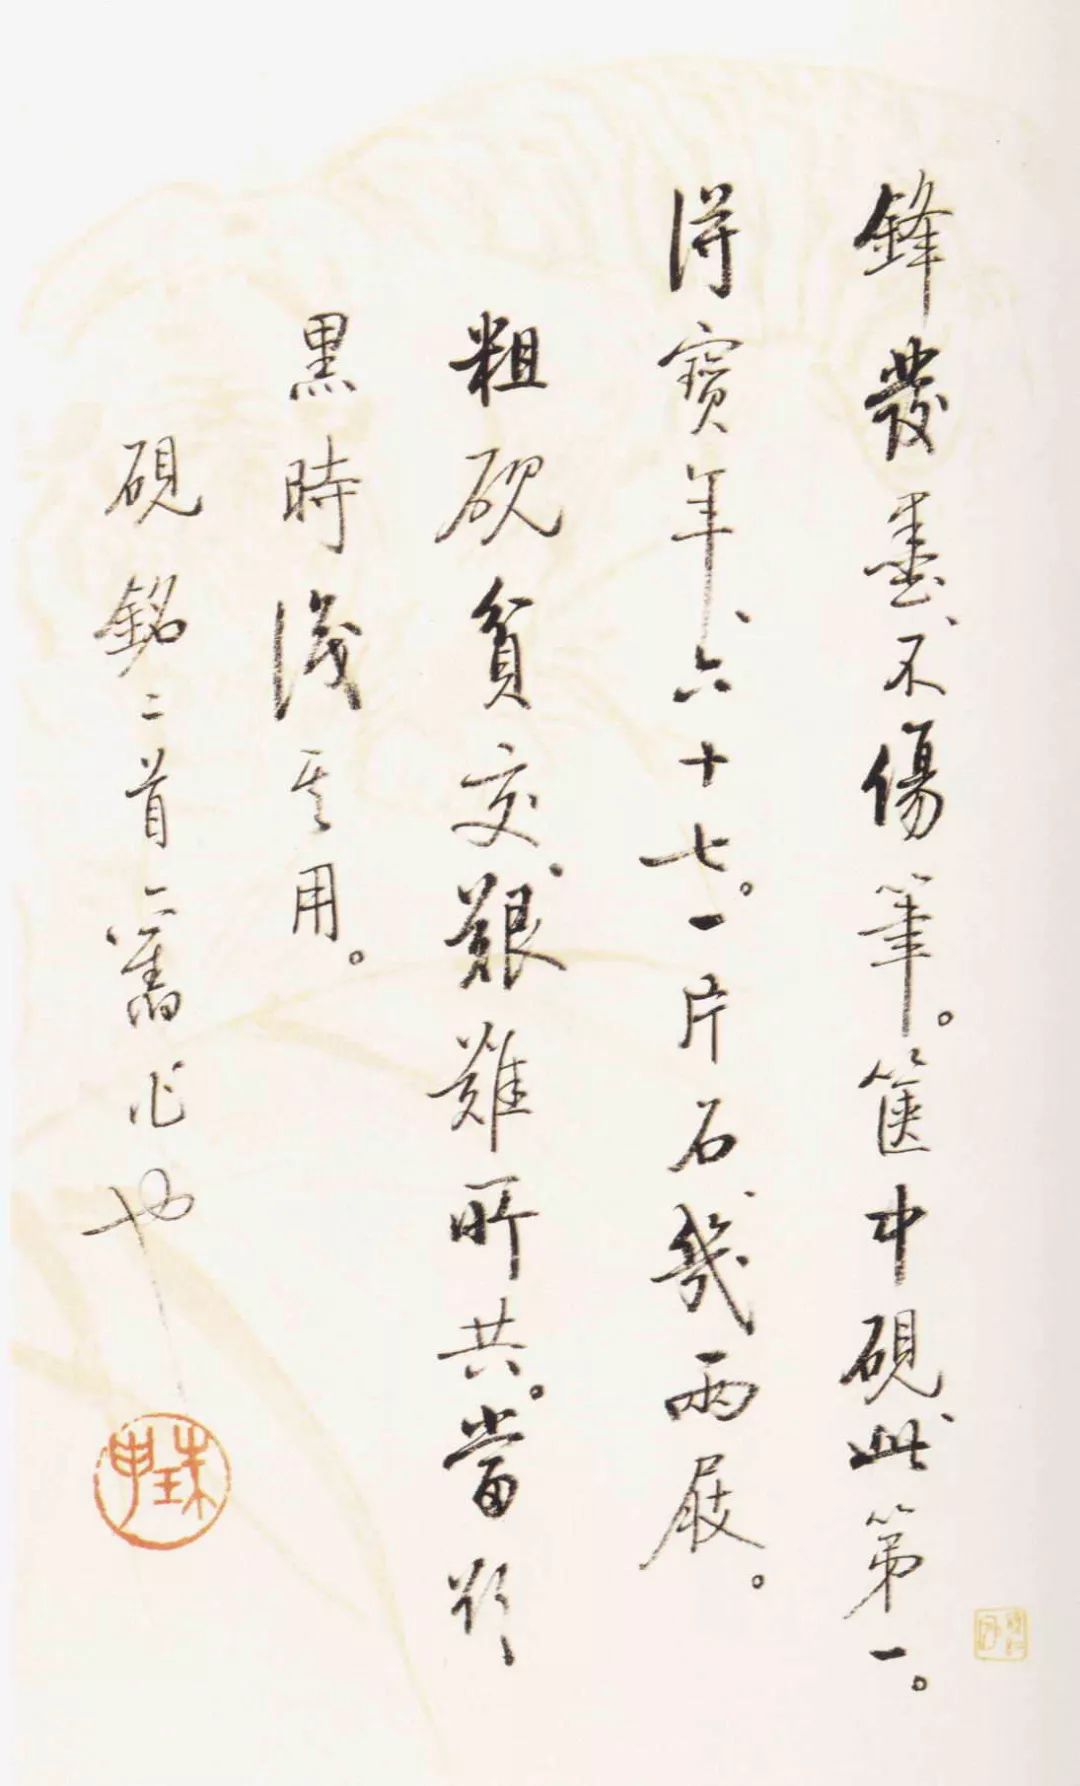 鋒發墨、不傷筆。篋中硯、此第一。
得寶年、六十七。一片石、幾兩屐。
粗硯貧交、艱難所共。當欲
黑時識其用。
硯銘二首、舊作也
珠申